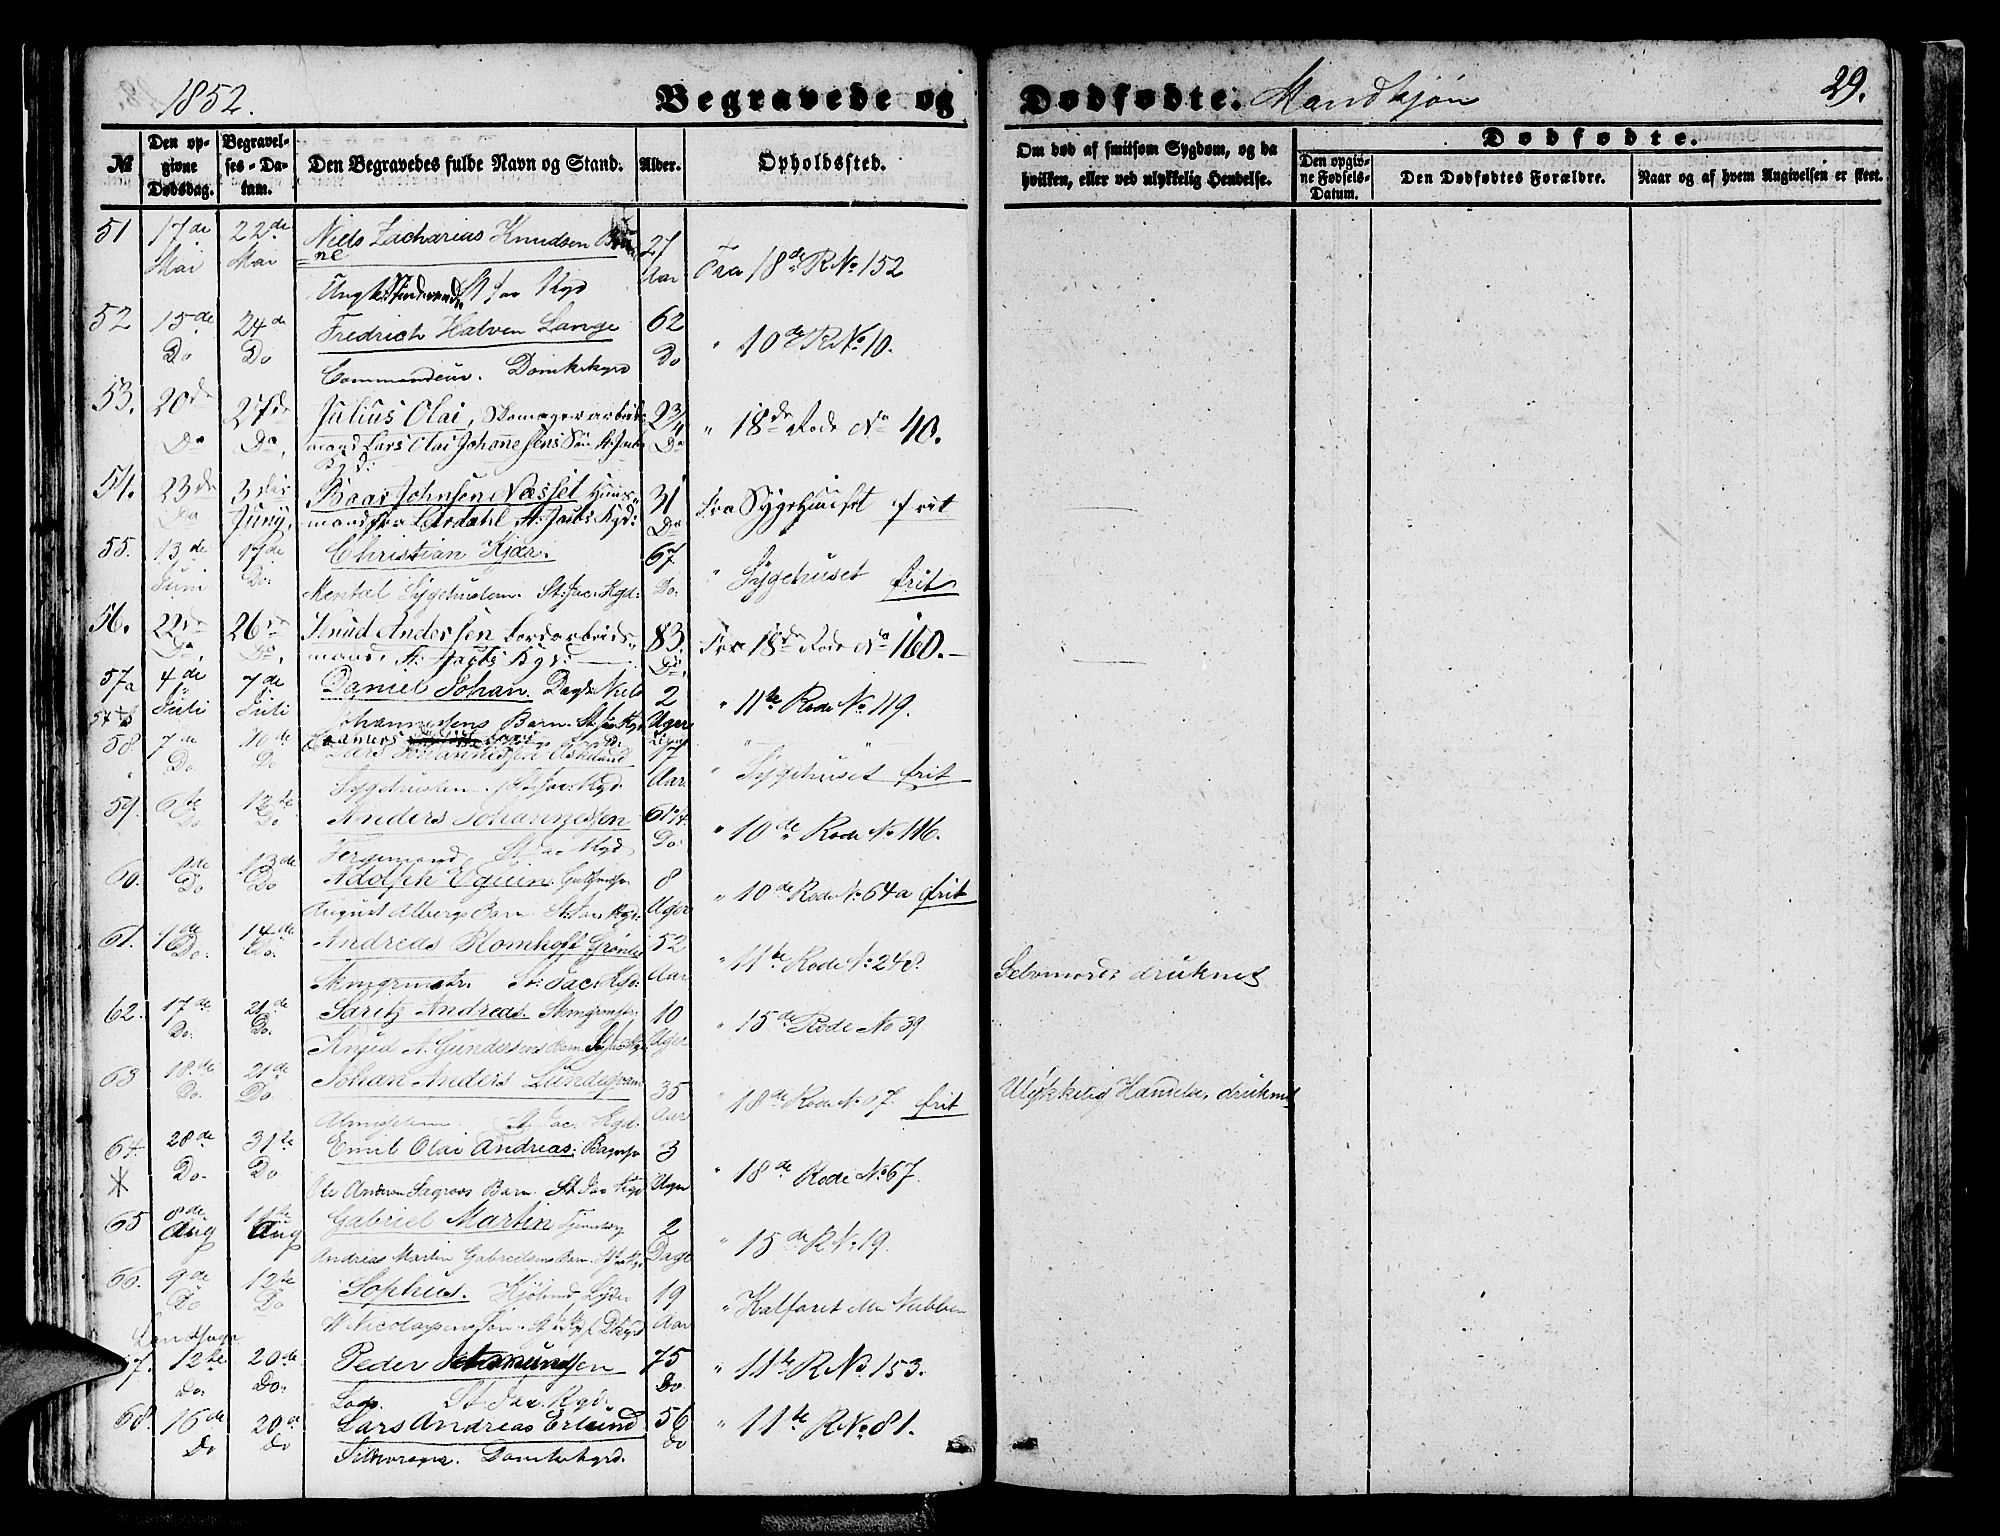 1852.
Begravede og Dødfødte. Mandkjøn
29.
№
Den opgivne Dødsdag.
Begravelses-Datum.
Den Begravedes fulde Navn og Stand.
Alder.
Opholdssted.
Om død af smitsom Sygdom, og da hvilken, eller ved ulykkelig Hendelse.
Dødfødte.
Den opgivne Fødsels Datum.
Den Dødfødtes Forældre.
Naar og af hvem Angivelsen er skeet.
51 17de 22de Niels Zacharias Knudsen 27
Mai Mai Aar Fra 18de R No. 152
St Jac Kgd
52 15de 24de Fredrich Halven Lange 62
Do Do Do " 10de R No. 10.
Commandeur. Domkkgrd
53. 20de 27de Julius Olai, 2¾
Do Do, mand Lars Olai Johannesens Søn St. Jacbs Do " 18de Rode No 40.
Kgd:
54. 23de 3die Roar Johnsen Næsset Huus- 31
Do Junij, mand fra Leirdahl St. Jacbs Kgd: Do Fra Sygehuuset frit
55. 13de 17de Christian Kjær. 67
Juni Do. Sygehuslem. St. Jac. Kgd. Do. " Sygehuset frit
56. 22de 26de Knud Andersen Jordarbeids- 83.
Do, Do, mand, St. Jacbs Kgd: Do, Fra 18de Rode No 160.
57a 4de 7de Daniel Johan. Dagk: Niels 2
Juli Juli Johannesens Barn. St. Jac Kgd Uger " 11te Rode No. 119.
57b
58 7de 10de Lars Johannessen Askeland 17
Do. Do Sygehuslem. St. Jac. Kgd. Aar. " Sygehuset frit
59. 6te 12te Anders Johannessen 61¼
Do Do Færgemand, St Jac Kgd Do. " 10de Rode No 116.
60. 13de Adolph Eguin. 8
Do Do August Albergs Barn St. Jac. Kgd. Uger " 10de Rode No. 64a frit
61. 14de Andreas Blomhoff Grønlie 52
Do. Do. Skmgrmstr. St. Jac. Kgd. Aar " 11te Rode No. 248. Selvmord: druknet
62. 17de 21de Saritz Andreas. Skmgrmstr. 10
Do. Do. Knud A. Gundersens Barn. St Jac. Kgd Uger " 15de Rode No 39
63 18de 21de Johan Anders Lundqvam 35
Do. Do Almuselem. St Jac. Kgd. Aar " 18de Rode No. 67. frit Ulykkelig Hændelse, druknet
64. 28de 31te Emil Olai Andreas: Bagersv 3
* Do. Do Ole Andreas Barn. St. Jac Kgd Uger " 18de Rode No. 67.
65 8de 11te Gabriel Martin 2
Aug Aug Andreas Martin Gabrielsens Barn. Dage " 15de R No. 19.
66. 9de 12te Sophus. Kjøbmd Lyder 19
Do Do W Nicolaysens Søn. Aar " Kalfaret eller Nubben
Landsogn
67. 12te 20de Peder 75
Do. Do. Lods. St Jac. Kgd. Do " 11te R No 153.
68. 16de 20de Lars Andreas Erlund 56
Do Do Domkirkegrd. Do " 11te R No. 81.